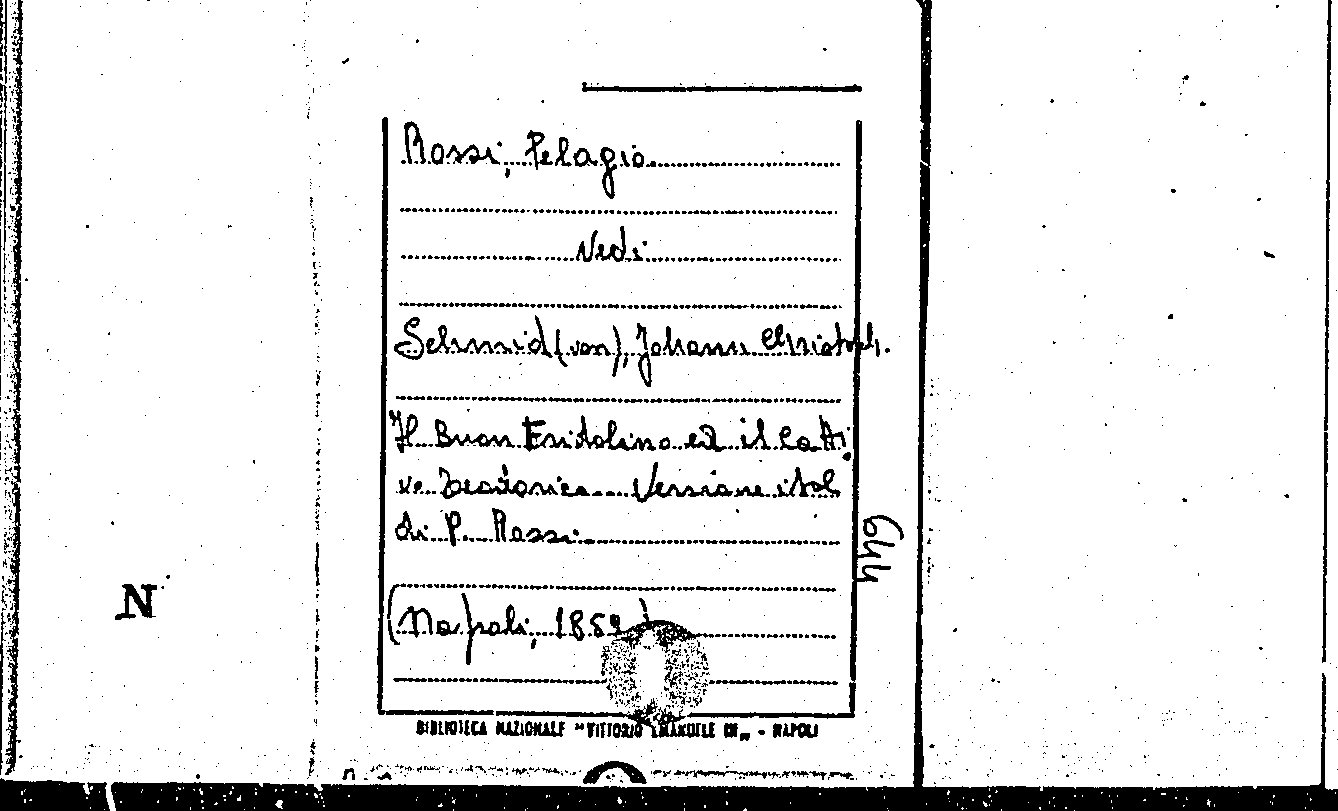 Rossi, Pelagio.
Vedi
Schmid (von), Johann Christoph.
Il Buon Fritolino ed il catti
vo Teodorico. Versione ital
di P. Rossi.
644
N
(Napoli, 1859)
BIBLIOTECA NAZIONALE "VITTORIO EMANUELE III" - NAPOLI